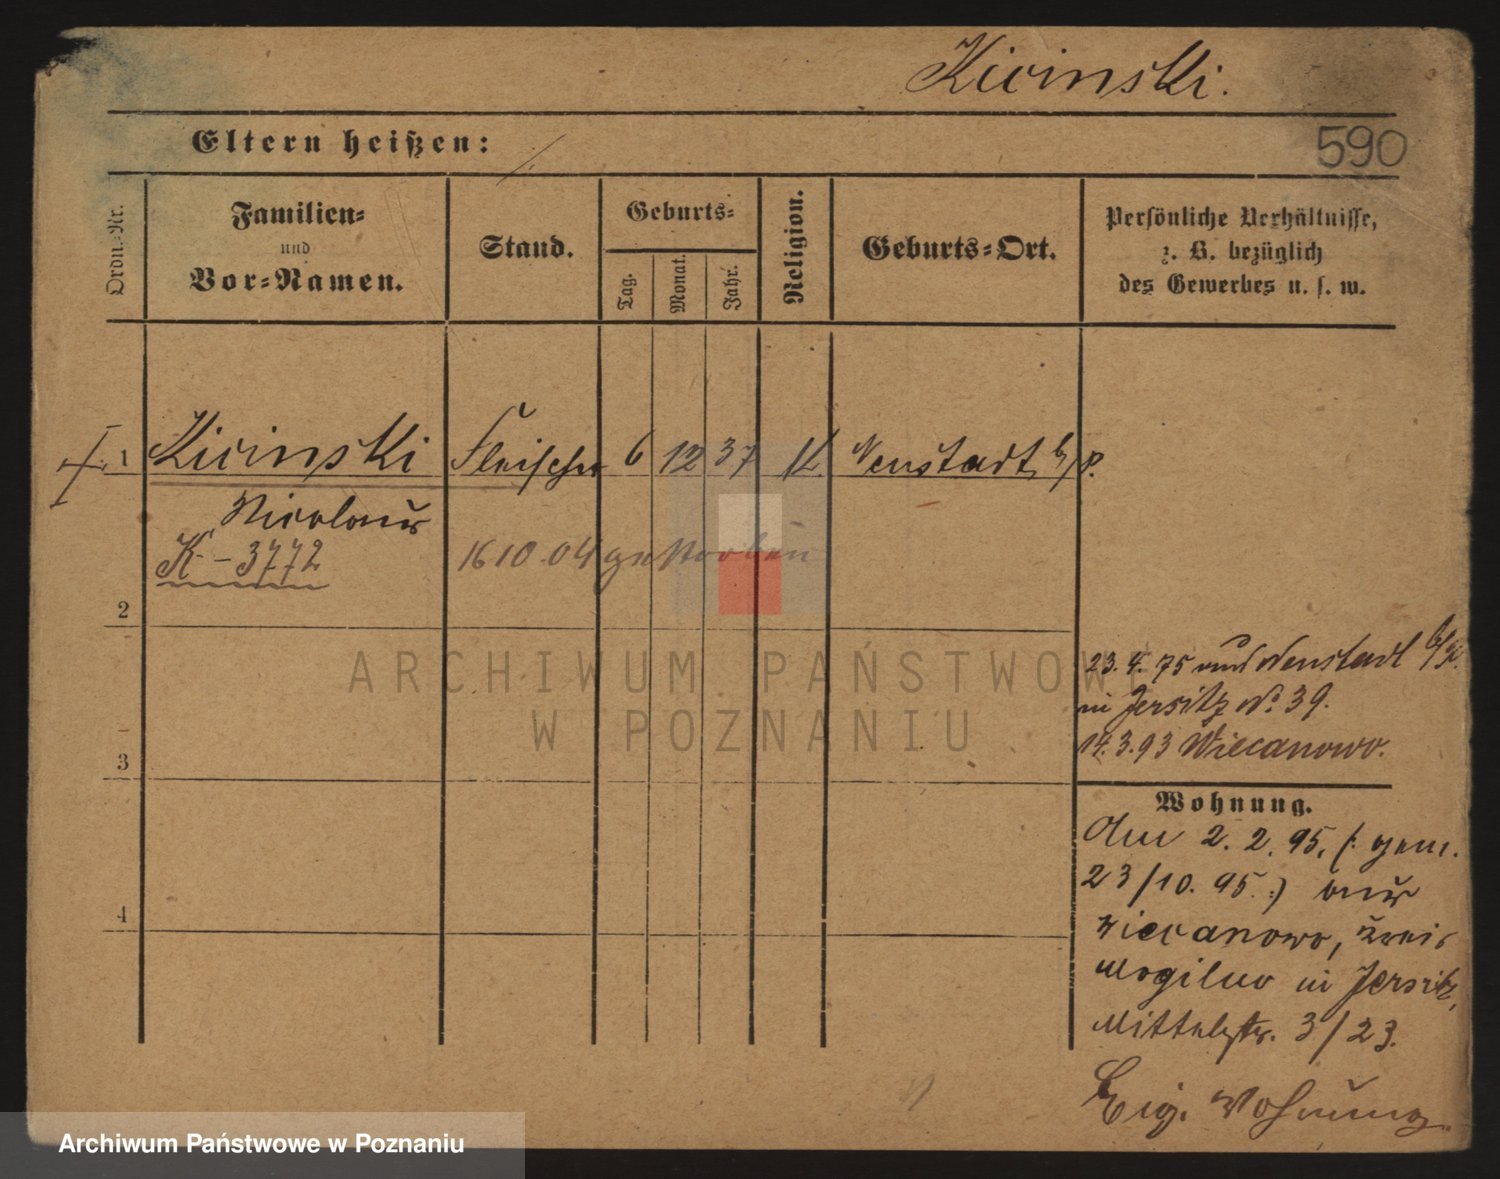 Kicinski.
Eltern heißen:
590
Ordn.-Nr.
Familien-
und
Vor-Namen.
Stand.
Geburts-
Tag.
Monat.
Jahr.
Religion.
Geburts-Ort.
Persönliche Verhältnisse,
z. B. bezüglich
des Gewerbes u. s. w.
1 Kicinski Fleischer 6 12 37 K Neustadt b/P.
Nicolaus
K - 3772 16 10. 04 gestorben
2
23. 4. 75 aus Neustadt
in Jersitz No 39.
3 14. 3. 93 Wiecanowo.
Wohnung.
Am 2. 2. 95. (: gem.
23/10. 95. :) aus
4 Wiecanowo, Kreis
Mogilno in Jersitz,
Mittelstr. 3/23.
Eig. Wohnung.
ARCHIWUM PAŃSTWOWE
W POZNANIU
Archiwum Państwowe w Poznaniu